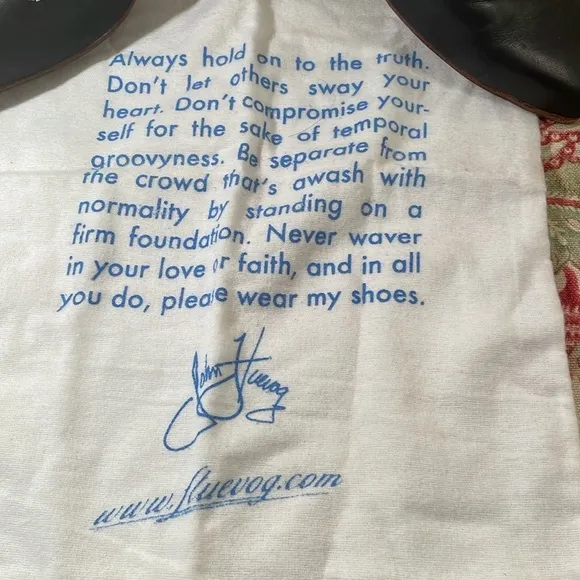 Always hold on to the truth.
Don't let others sway your
heart. Don't compromise your-
self for the sake of temporal
groovyness. Be separate from
the crowd that's awash with
normality by standing on a
firm foundation. Never waver
in your love or faith, and in all
you do, please wear my shoes.
John Fluevog
www.fluevog.com